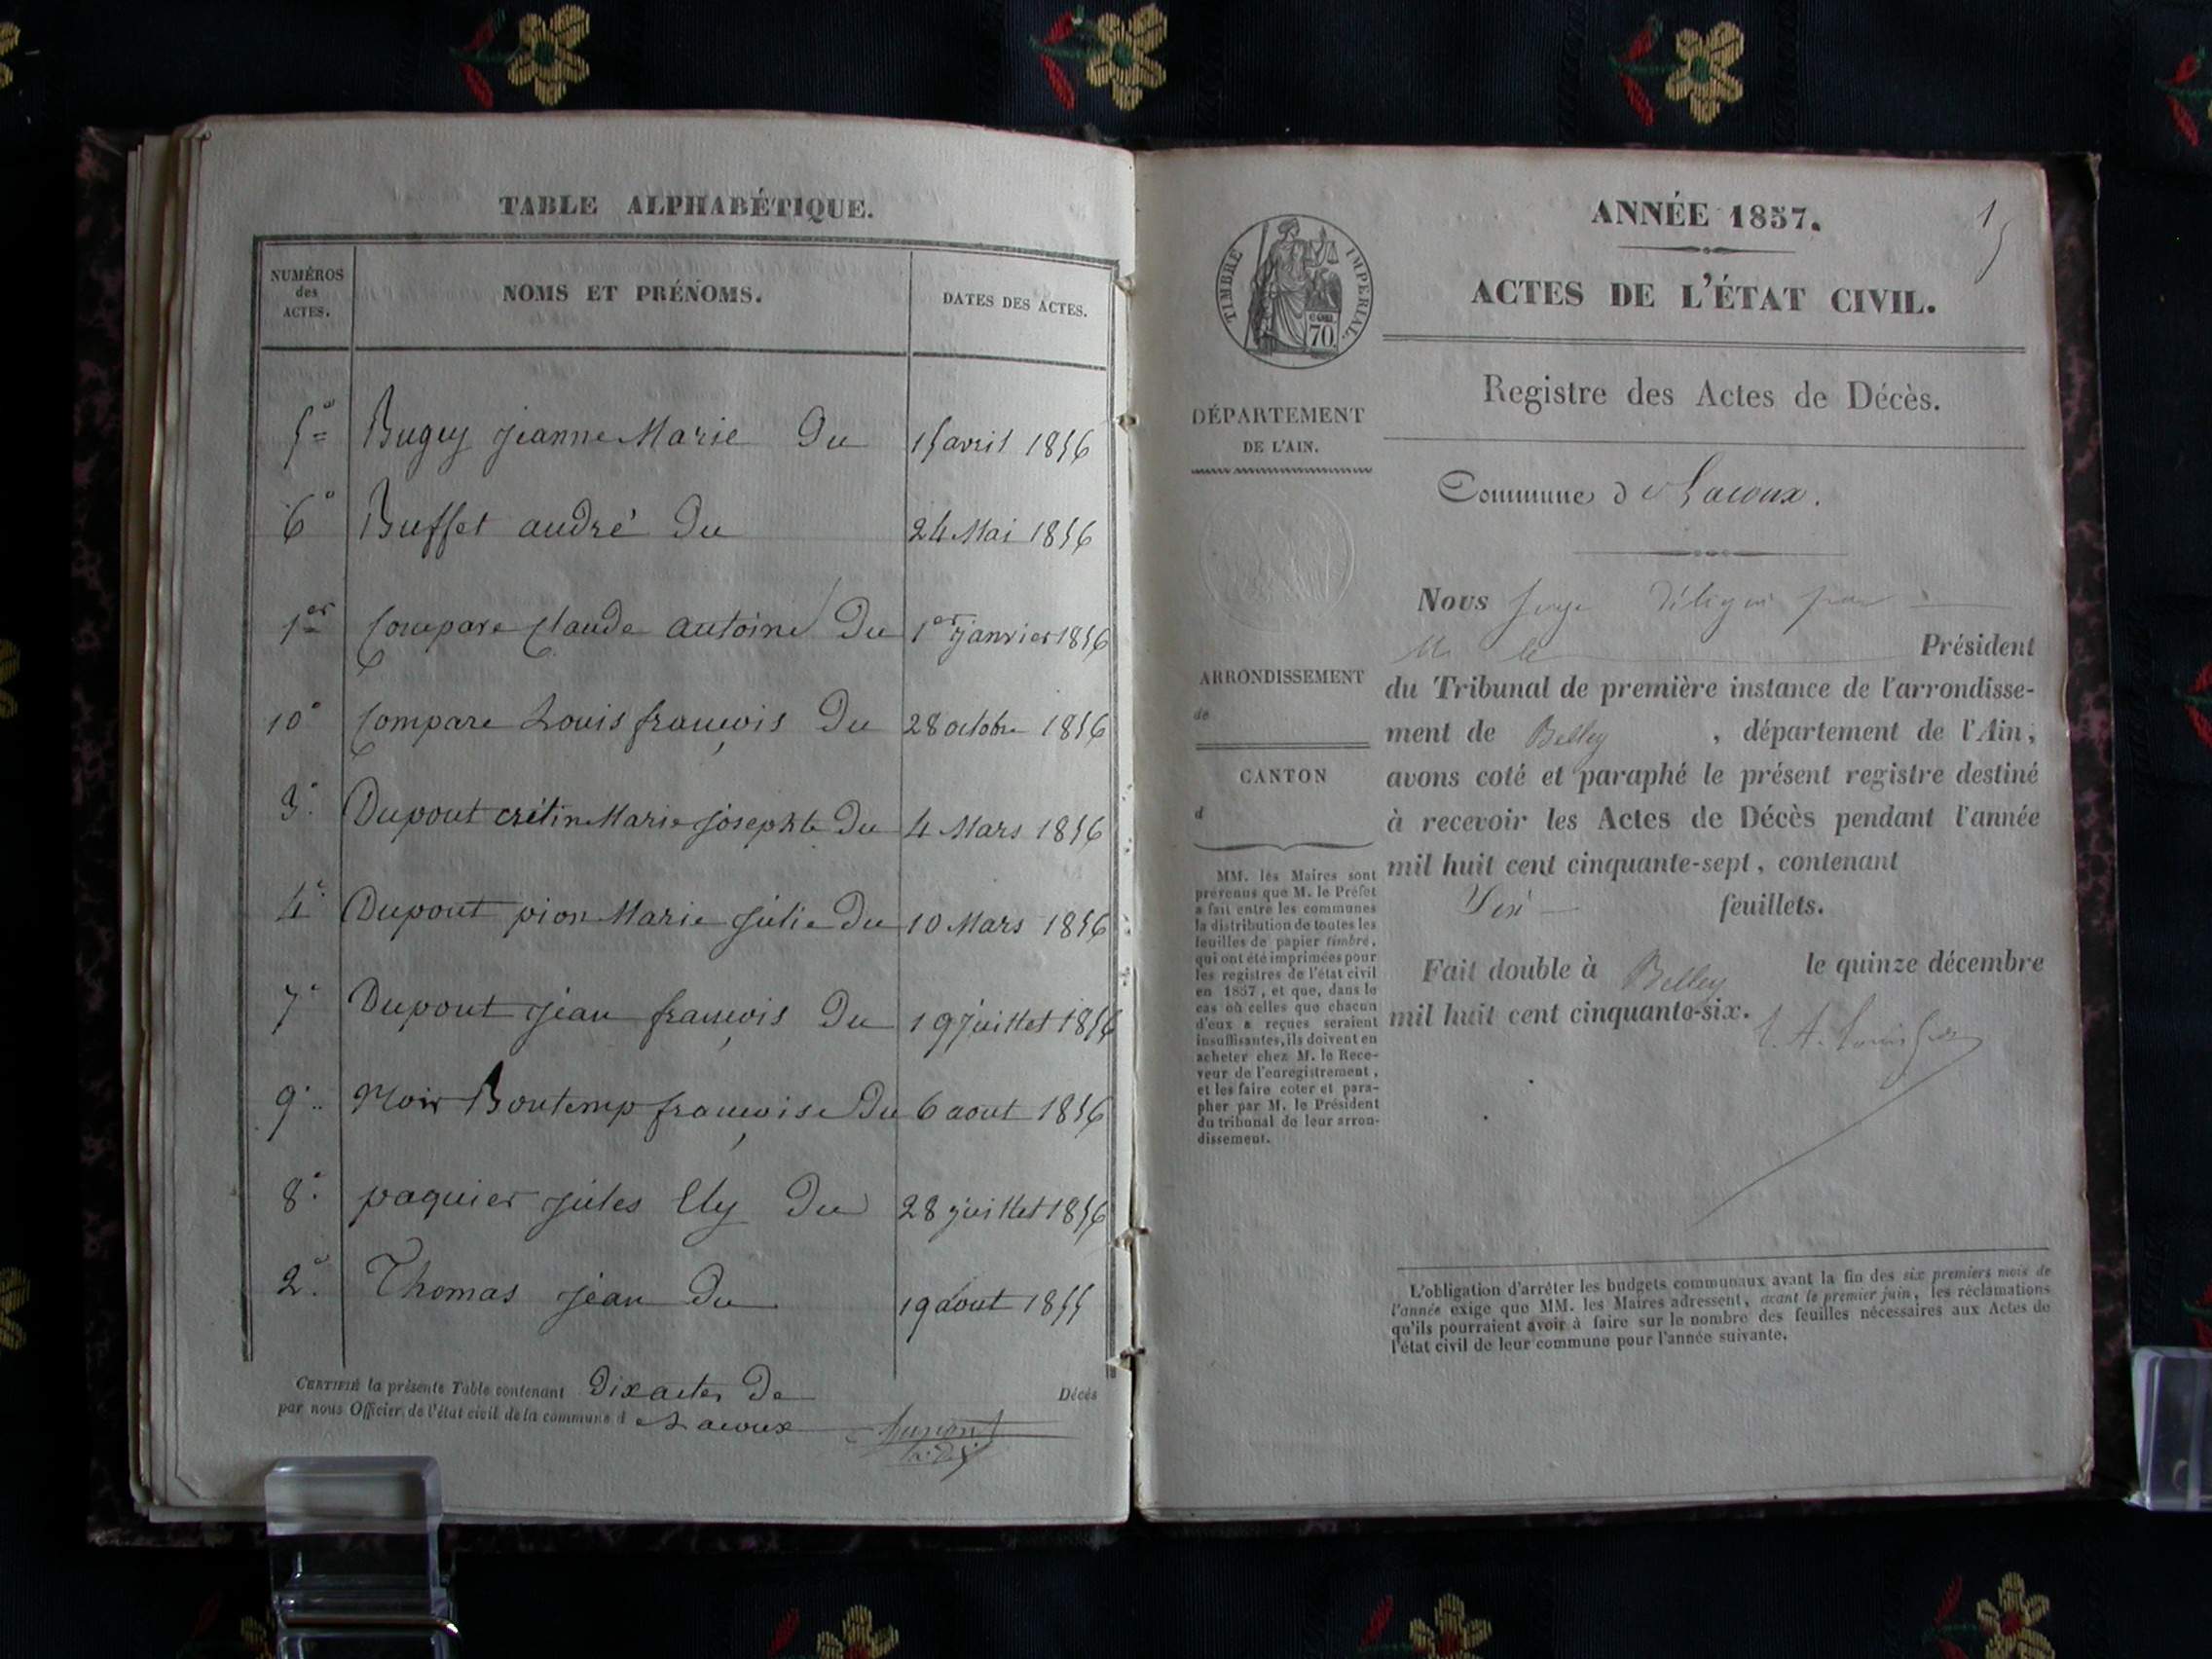 TABLE ALPHABÉTIQUE.
NUMÉROS
des
ACTES.
NOMS ET PRÉNOMS.
DATES DES ACTES.
5e Bugey jeanne Marie Du 15 avril 1856
6e Buffet andré Du 24 Mai 1856
1er Compare Claude antoine Du 1er janvier 1856
10e Compare Louis françois Du 28 octobre 1856
3e Dupont crétin Marie josephte Du 4 Mars 1856
4e Dupont pion Marie julie Du 10 Mars 1856
7e Dupont jean françois Du 19 juillet 1856
9e Noir Bontemp françoise Du 6 aout 1856
8e paquier jules Ely Du 28 juillet 1856
2e Thomas jean Du 19 aout 1855
CERTIFIÉ la présente Table contenant Dix actes De Décès
par nous Officier de l'état civil de la commune d e Lacoux
Dupont
ANNÉE 1857.
1
ACTES DE L'ÉTAT CIVIL.
TIMBRE IMPERIAL
70
Registre des Actes de Décès.
DÉPARTEMENT
DE L'AIN.
Commune d e Lacoux.
Nous juge délégué par
M. le Président
du Tribunal de première instance de l'arrondisse-
ment de Belley , département de l'Ain,
avons coté et paraphé le présent registre destiné
à recevoir les Actes de Décès pendant l'année
mil huit cent cinquante-sept, contenant
feuillets.
Fait double à Belley le quinze décembre
mil huit cent cinquante-six.
ARRONDISSEMENT
de
CANTON
d
MM. les Maires sont
prévenus que M. le Préfet
a fait entre les communes
la distribution de toutes les
feuilles de papier timbré,
qui ont été imprimées pour
les registres de l'état civil
en 1857, et que, dans le
cas où celles que chacun
d'eux a reçues seraient
insuffisantes, ils doivent en
acheter chez M. le Rece-
veur de l'enregistrement,
et les faire coter et para-
pher par M. le Président
du tribunal de leur arron-
dissement.
L'obligation d'arrêter les budgets communaux avant la fin des six premiers mois de
l'année exige que MM. les Maires adressent, avant le premier juin, les réclamations
qu'ils pourraient avoir à faire sur le nombre des feuilles nécessaires aux Actes de
l'état civil de leur commune pour l'année suivante.